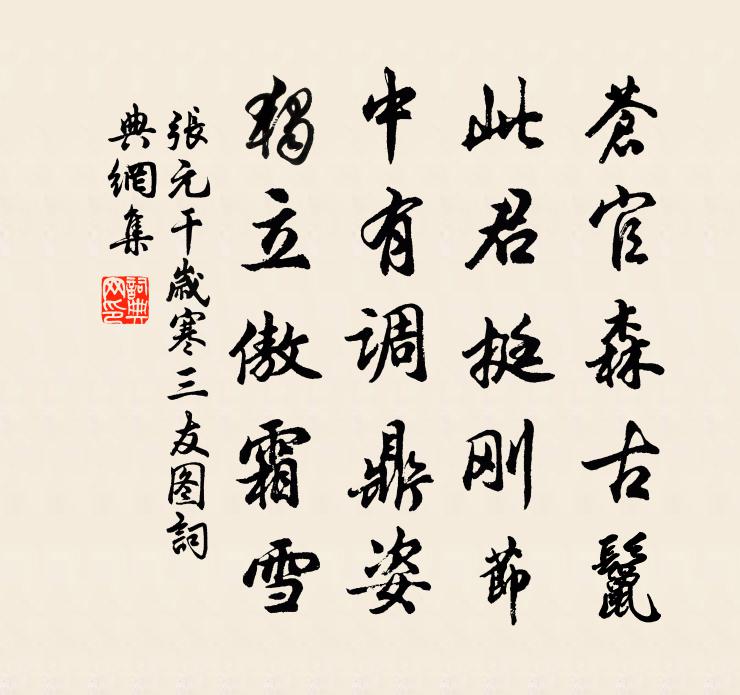 蒼官森古鬣
此君挺刚節
中有调鼎姿
獨立傲霜雪
張元干歲寒三友图詞
典網集
詞典网印